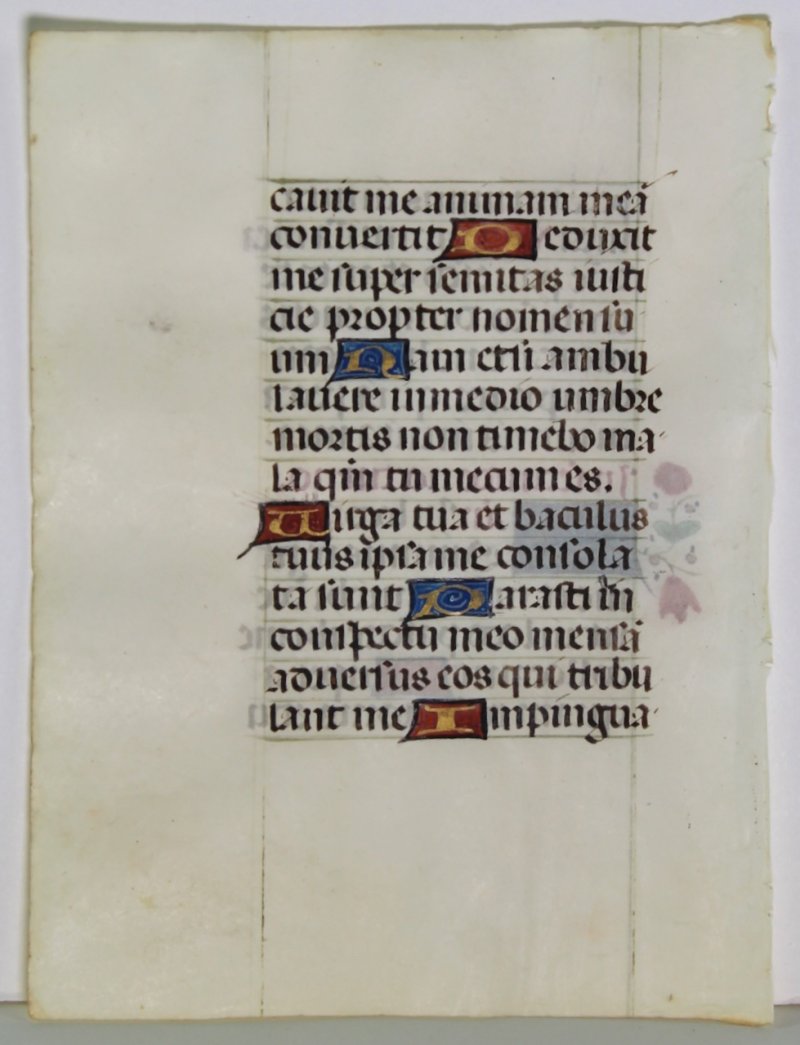 cauit me animam meā
conuertit Deduxit
me super semitas iusti
cie propter nomen su
um Nam etsi ambu
lauero in medio umbre
mortis non timebo ma
la qm̄ tu mecum es.
Uirga tua et baculus
tuus ipsa me consola
ta sunt Parasti in
conspectu meo mensā
aduersus eos qui tribu
lant me Impingua